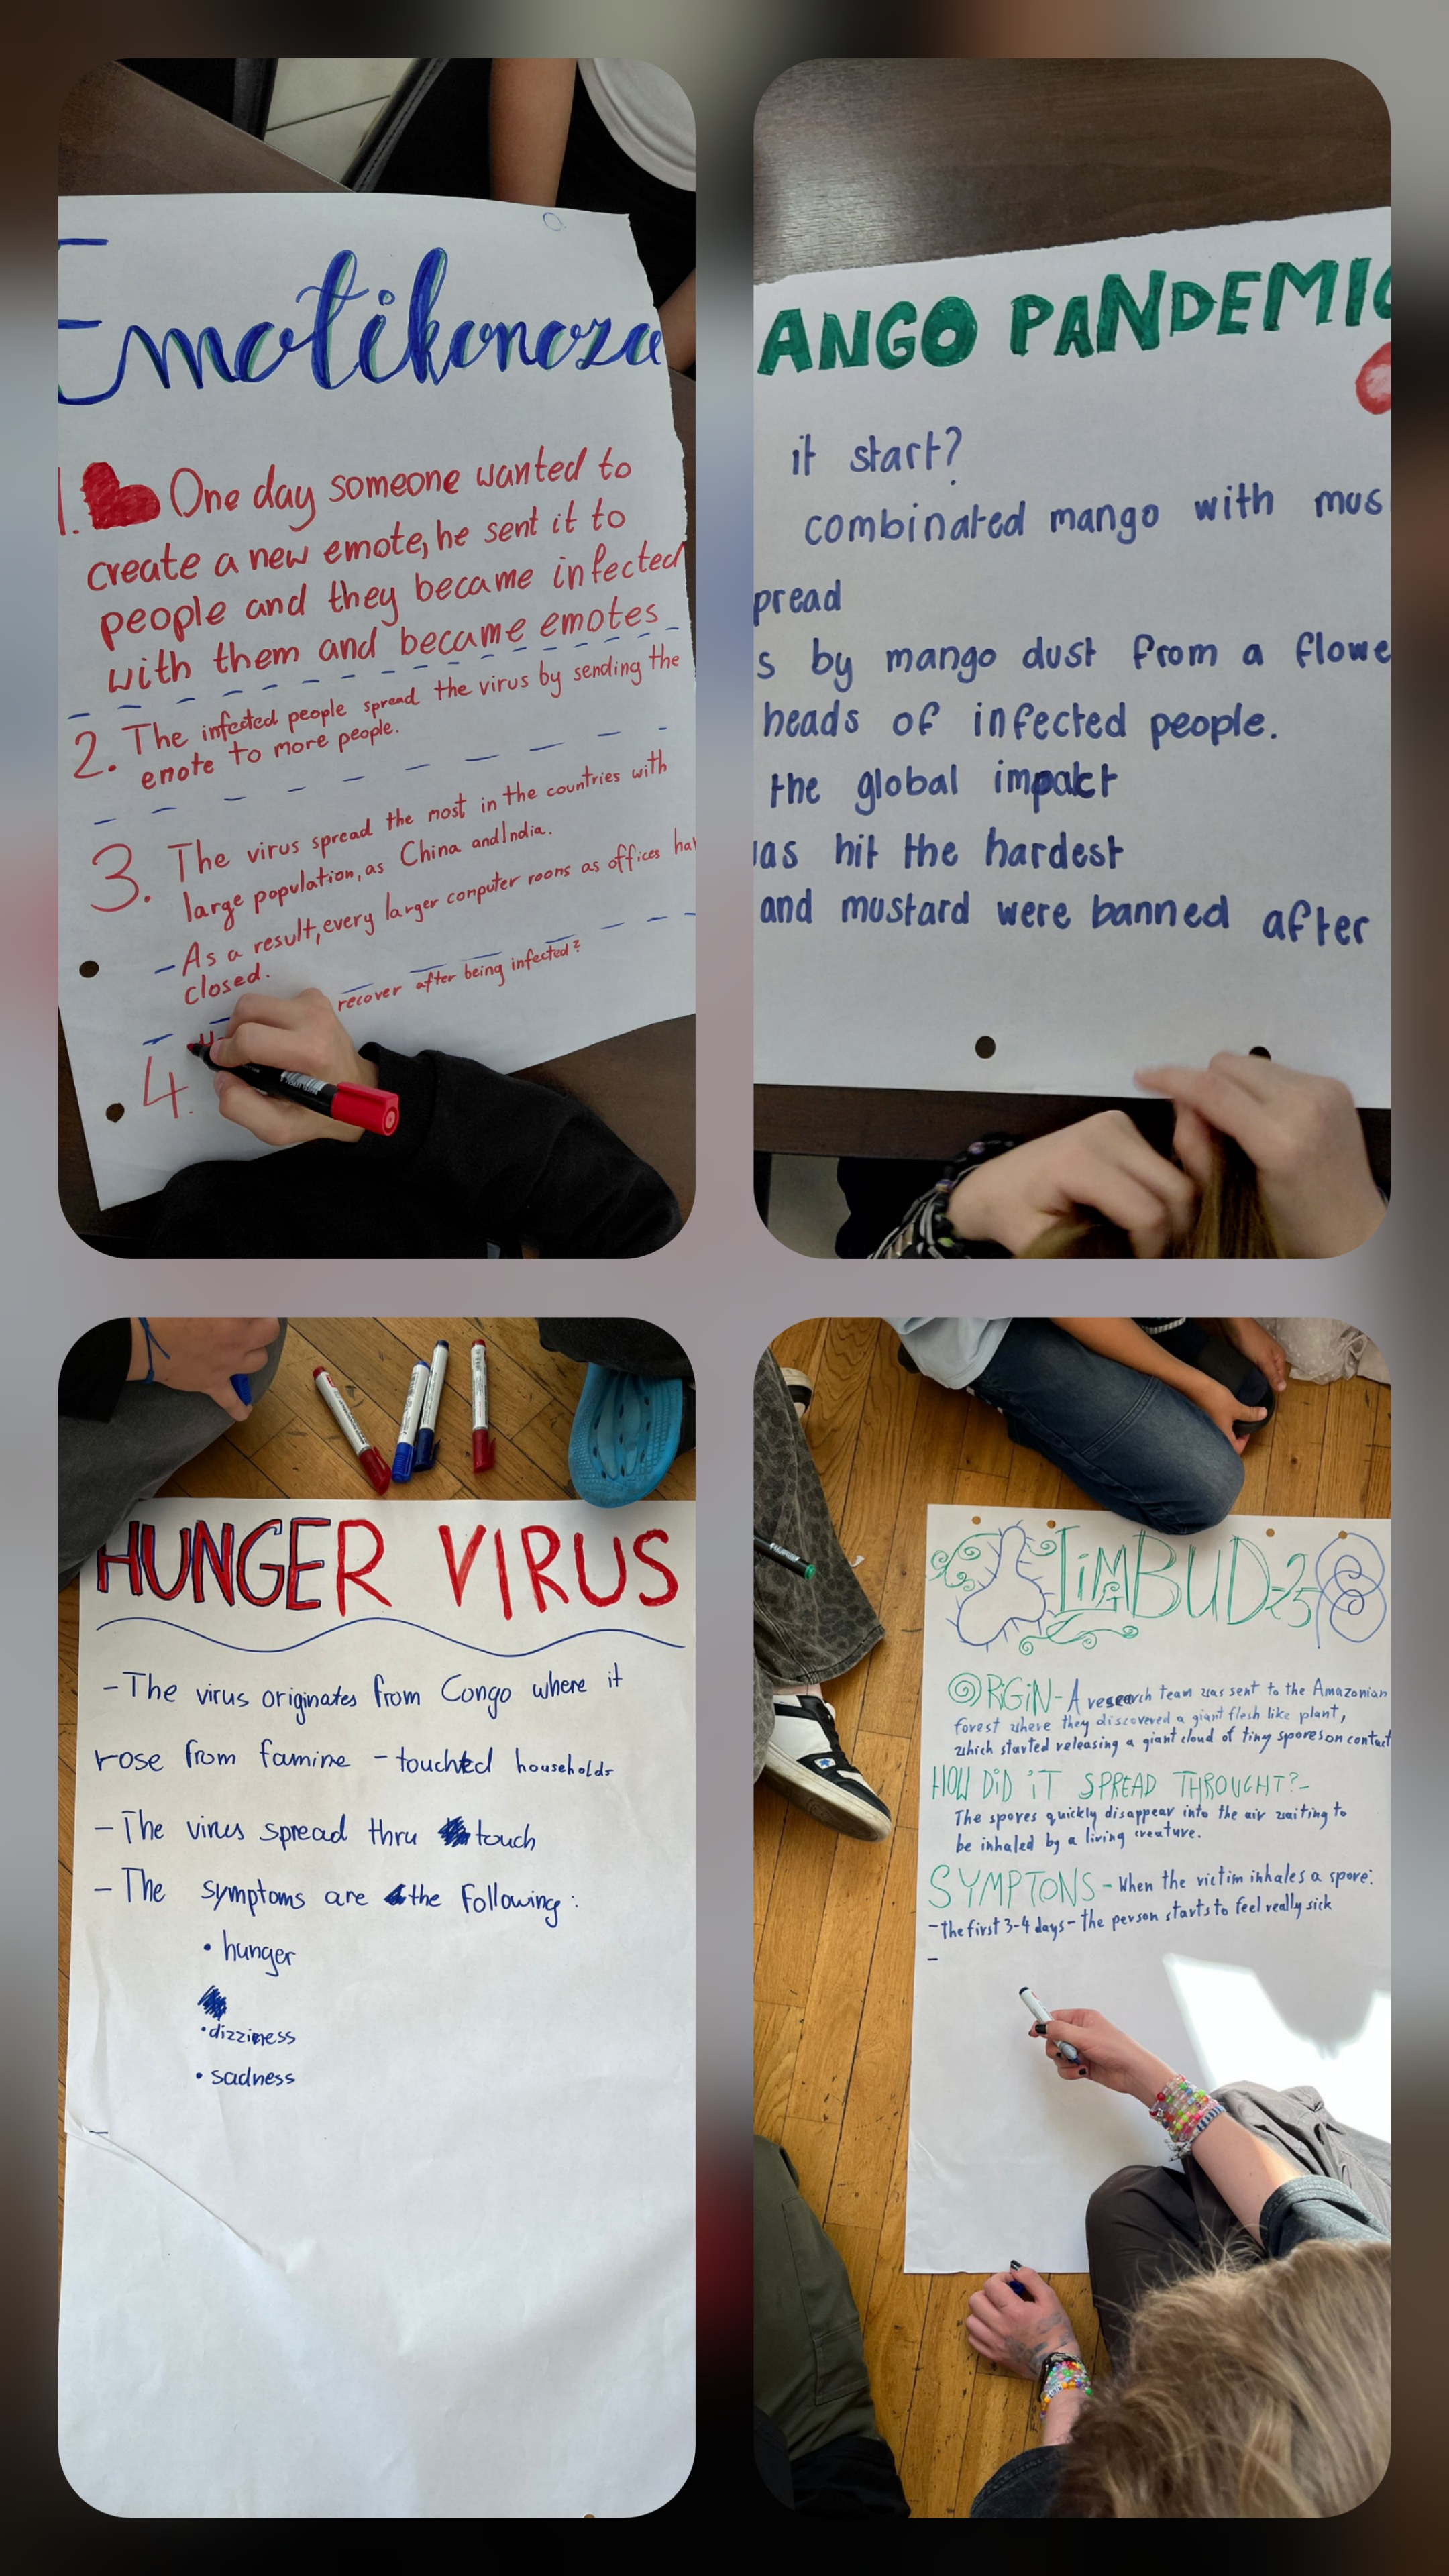 Emotikonoza
1. One day someone wanted to
create a new emote, he sent it to
people and they became infected
with them and became emotes
2. The infected people spread the virus by sending the
emote to more people.
3. The virus spread the most in the countries with
large population, as China and India.
- As a result, every larger computer rooms as offices hav
closed.
4. recover after being infected?
ANGO PANDEMIC
it start?
combinated mango with mus
pread
s by mango dust from a flowe
heads of infected people.
the global impakct
as hit the hardest
and mustard were banned after
HUNGER VIRUS
- The virus originates from Congo where it
rose from famine - touchted households
- The virus spread thru touch
- The symptoms are the following:
• hunger
• dizziness
• sadness
LIMBUD-23
ORiGiN - A research team was sent to the Amazonian
forest where they discovered a giant flesh like plant,
which started releasing a giant cloud of tiny spores on contact
HOW DiD iT SPREAD THROUGHT? -
The spores quickly disappear into the air waiting to
be inhaled by a living creature.
SYMPTONS - When the victim inhales a spore:
- the first 3-4 days - the person starts to feel really sick
-